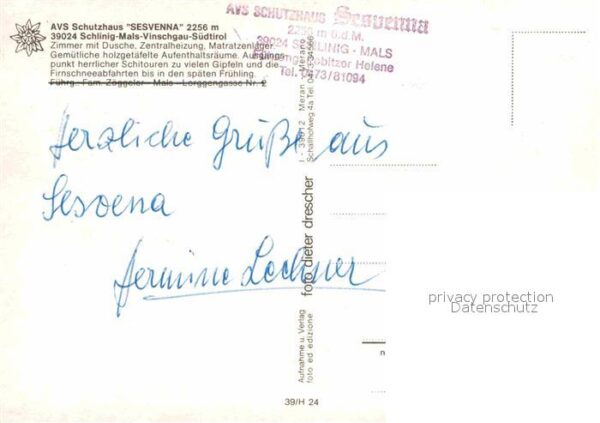 AVS Schutzhaus "SESVENNA" 2256 m
39024 Schlinig-Mals-Vinschgau-Südtirol
Zimmer mit Dusche, Zentralheizung, Matratzenlager.
Gemütliche holzgetäfelte Aufenthaltsräume. Ausgangs-
punkt herrlicher Schitouren zu vielen Gipfeln und die
Firnschneeabfahrten bis in den späten Frühling.
Führg.: Fam. Zöggeler - Mals - Lorggengasse Nr. 2
AVS SCHUTZHAUS Sesvenna
2256 m ü.d.M.
39024 SCHLINIG - MALS
Pobitzer Helene
Tel. 0473/81094
Herzliche Grüße aus
Sesvena
Hermine Lechner
I - 39012 Meran - Merano
Schallhofweg 4a Tel.
foto dieter drescher
Aufnahme u. Verlag
foto ed edizione
39/H 24
privacy protection
Datenschutz